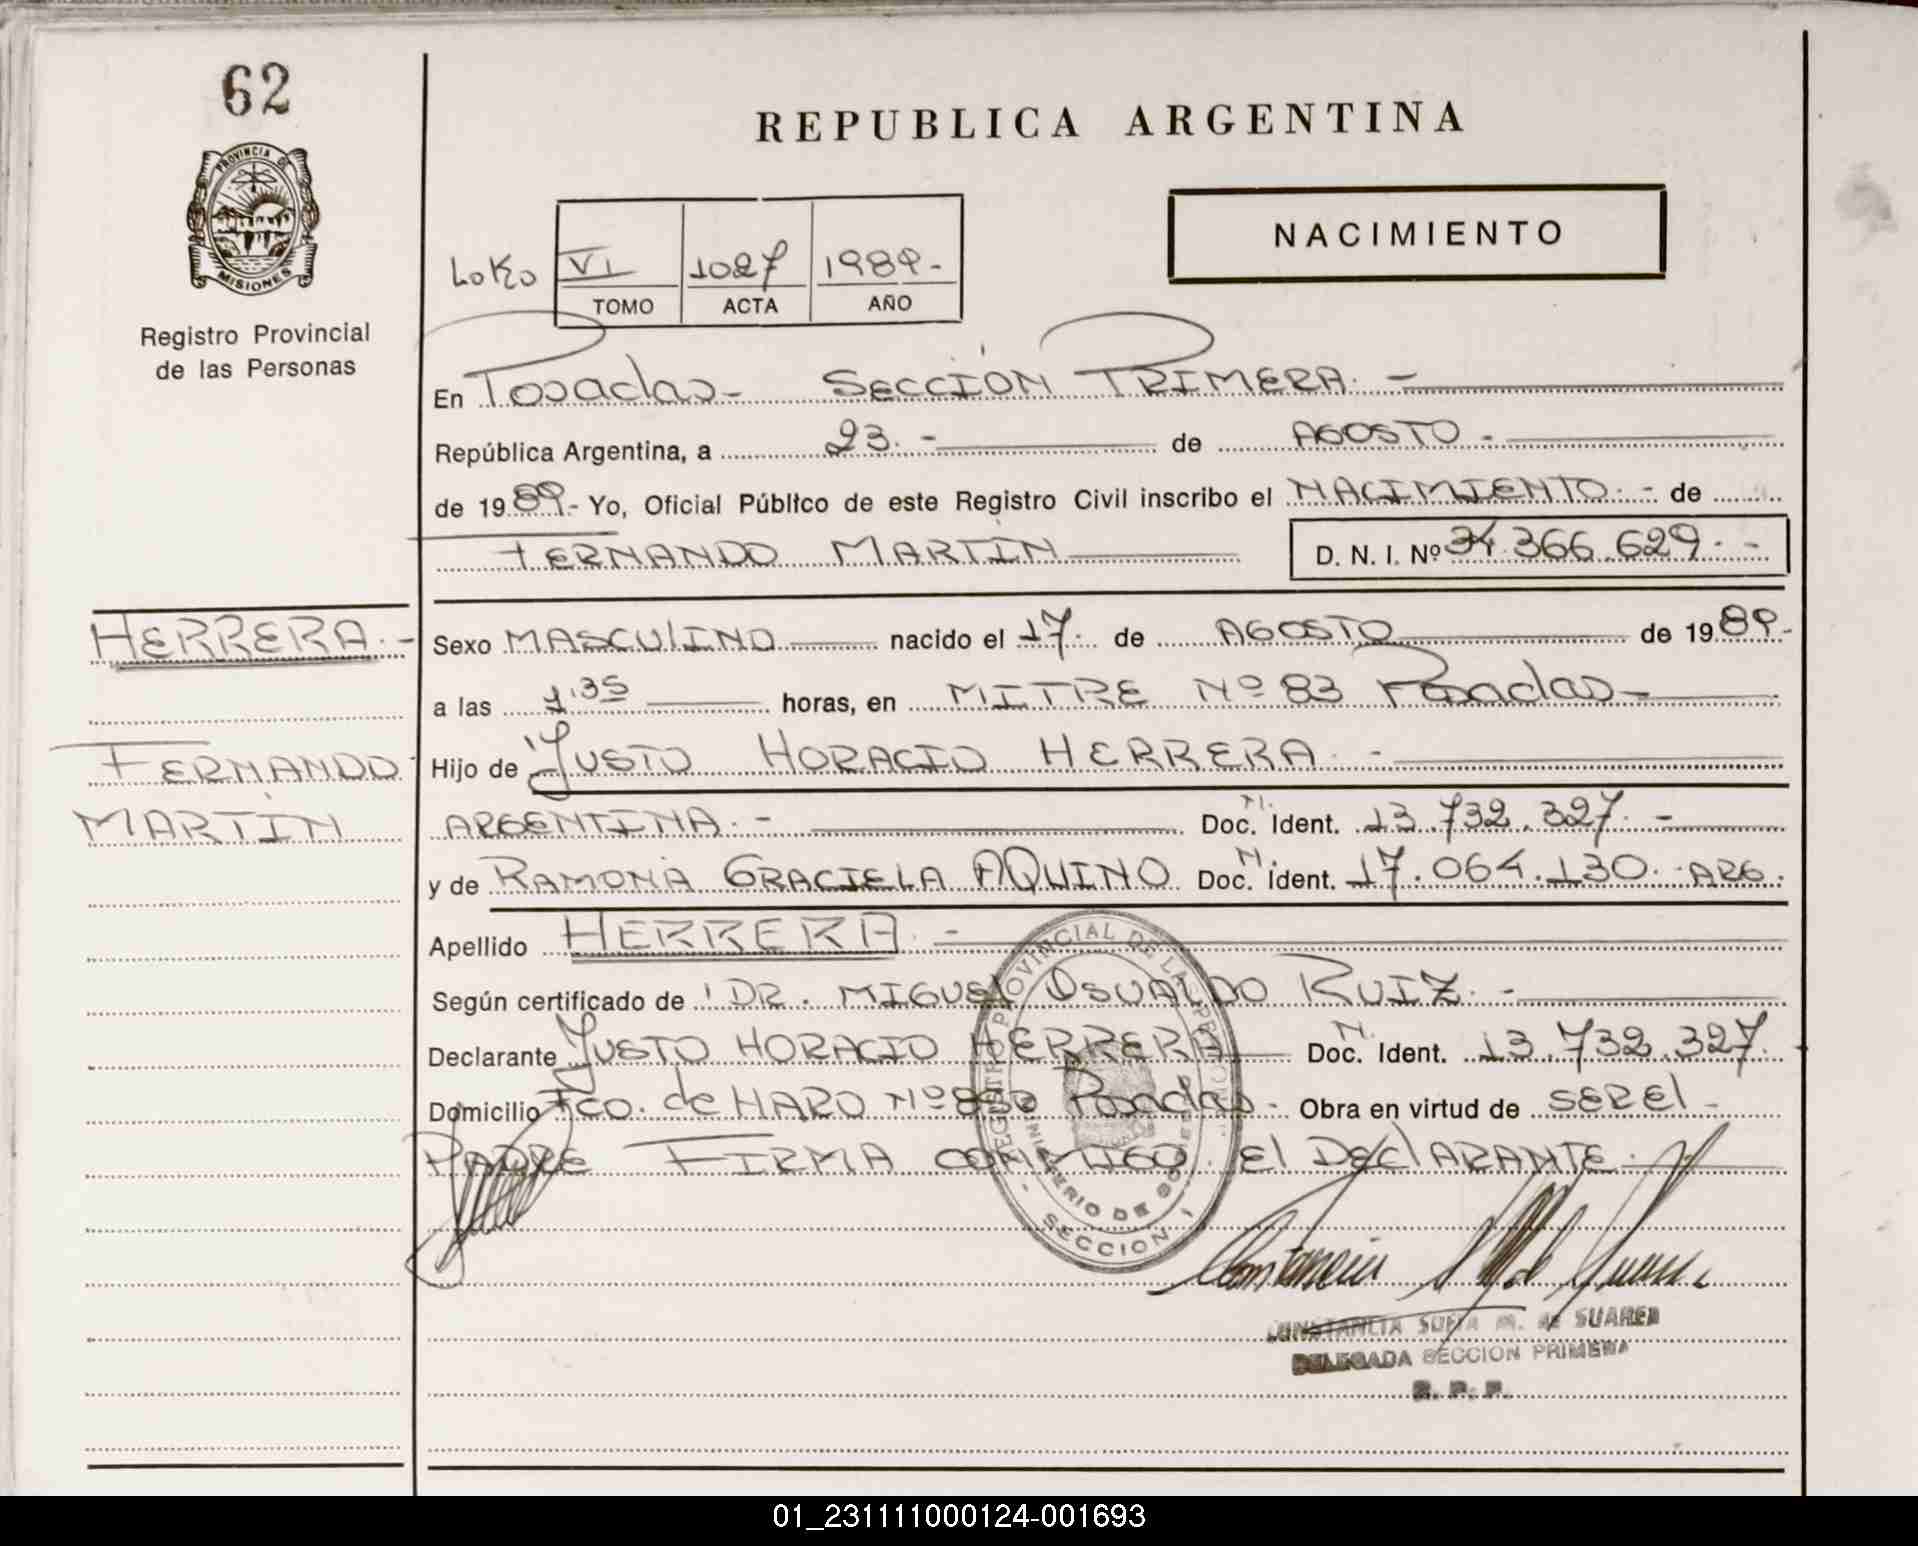 62
REPUBLICA ARGENTINA
PROVINCIA DE
MISIONES
Registro Provincial
de las Personas
NACIMIENTO
VI 1027 1989.-
TOMO ACTA AÑO
En Posadas- SECCIÓN PRIMERA.-
República Argentina, a 23.- de AGOSTO.-
de 1989.- Yo, Oficial Público de este Registro Civil inscribo el NACIMIENTO.- de
FERNANDO MARTÍN D. N. I. Nº 34.366.629.-
HERRERA.-
FERNANDO
MARTÍN
Sexo MASCULINO nacido el 17. de AGOSTO de 1989.-
a las 1'35 horas, en MITRE Nº 83 Posadas-
Hijo de JUSTO HORACIO HERRERA.-
ARGENTINA.- Doc. N. Ident. 13.732.327.-
y de RAMONA GRACIELA AQUINO Doc. N. Ident. 17.064.130. ARG.
Apellido HERRERA.-
Según certificado de DR. MIGUEL OSVALDO RUIZ.-
Declarante JUSTO HORACIO HERRERA Doc. N. Ident. 13.732.327.
Domicilio Fco. de HARO Nº 850 Posadas- Obra en virtud de SER El-
PADRE FIRMA CONMIGO El DEClARANTE.
REGISTRO PROVINCIAL DE LAS PERSONAS
MINISTERIO DE GOBIERNO
SECCION 1
CONSTANCIA SOFIA M. de SUAREZ
DELEGADA SECCION PRIMERA
R. P. P.
01_231111000124-001693